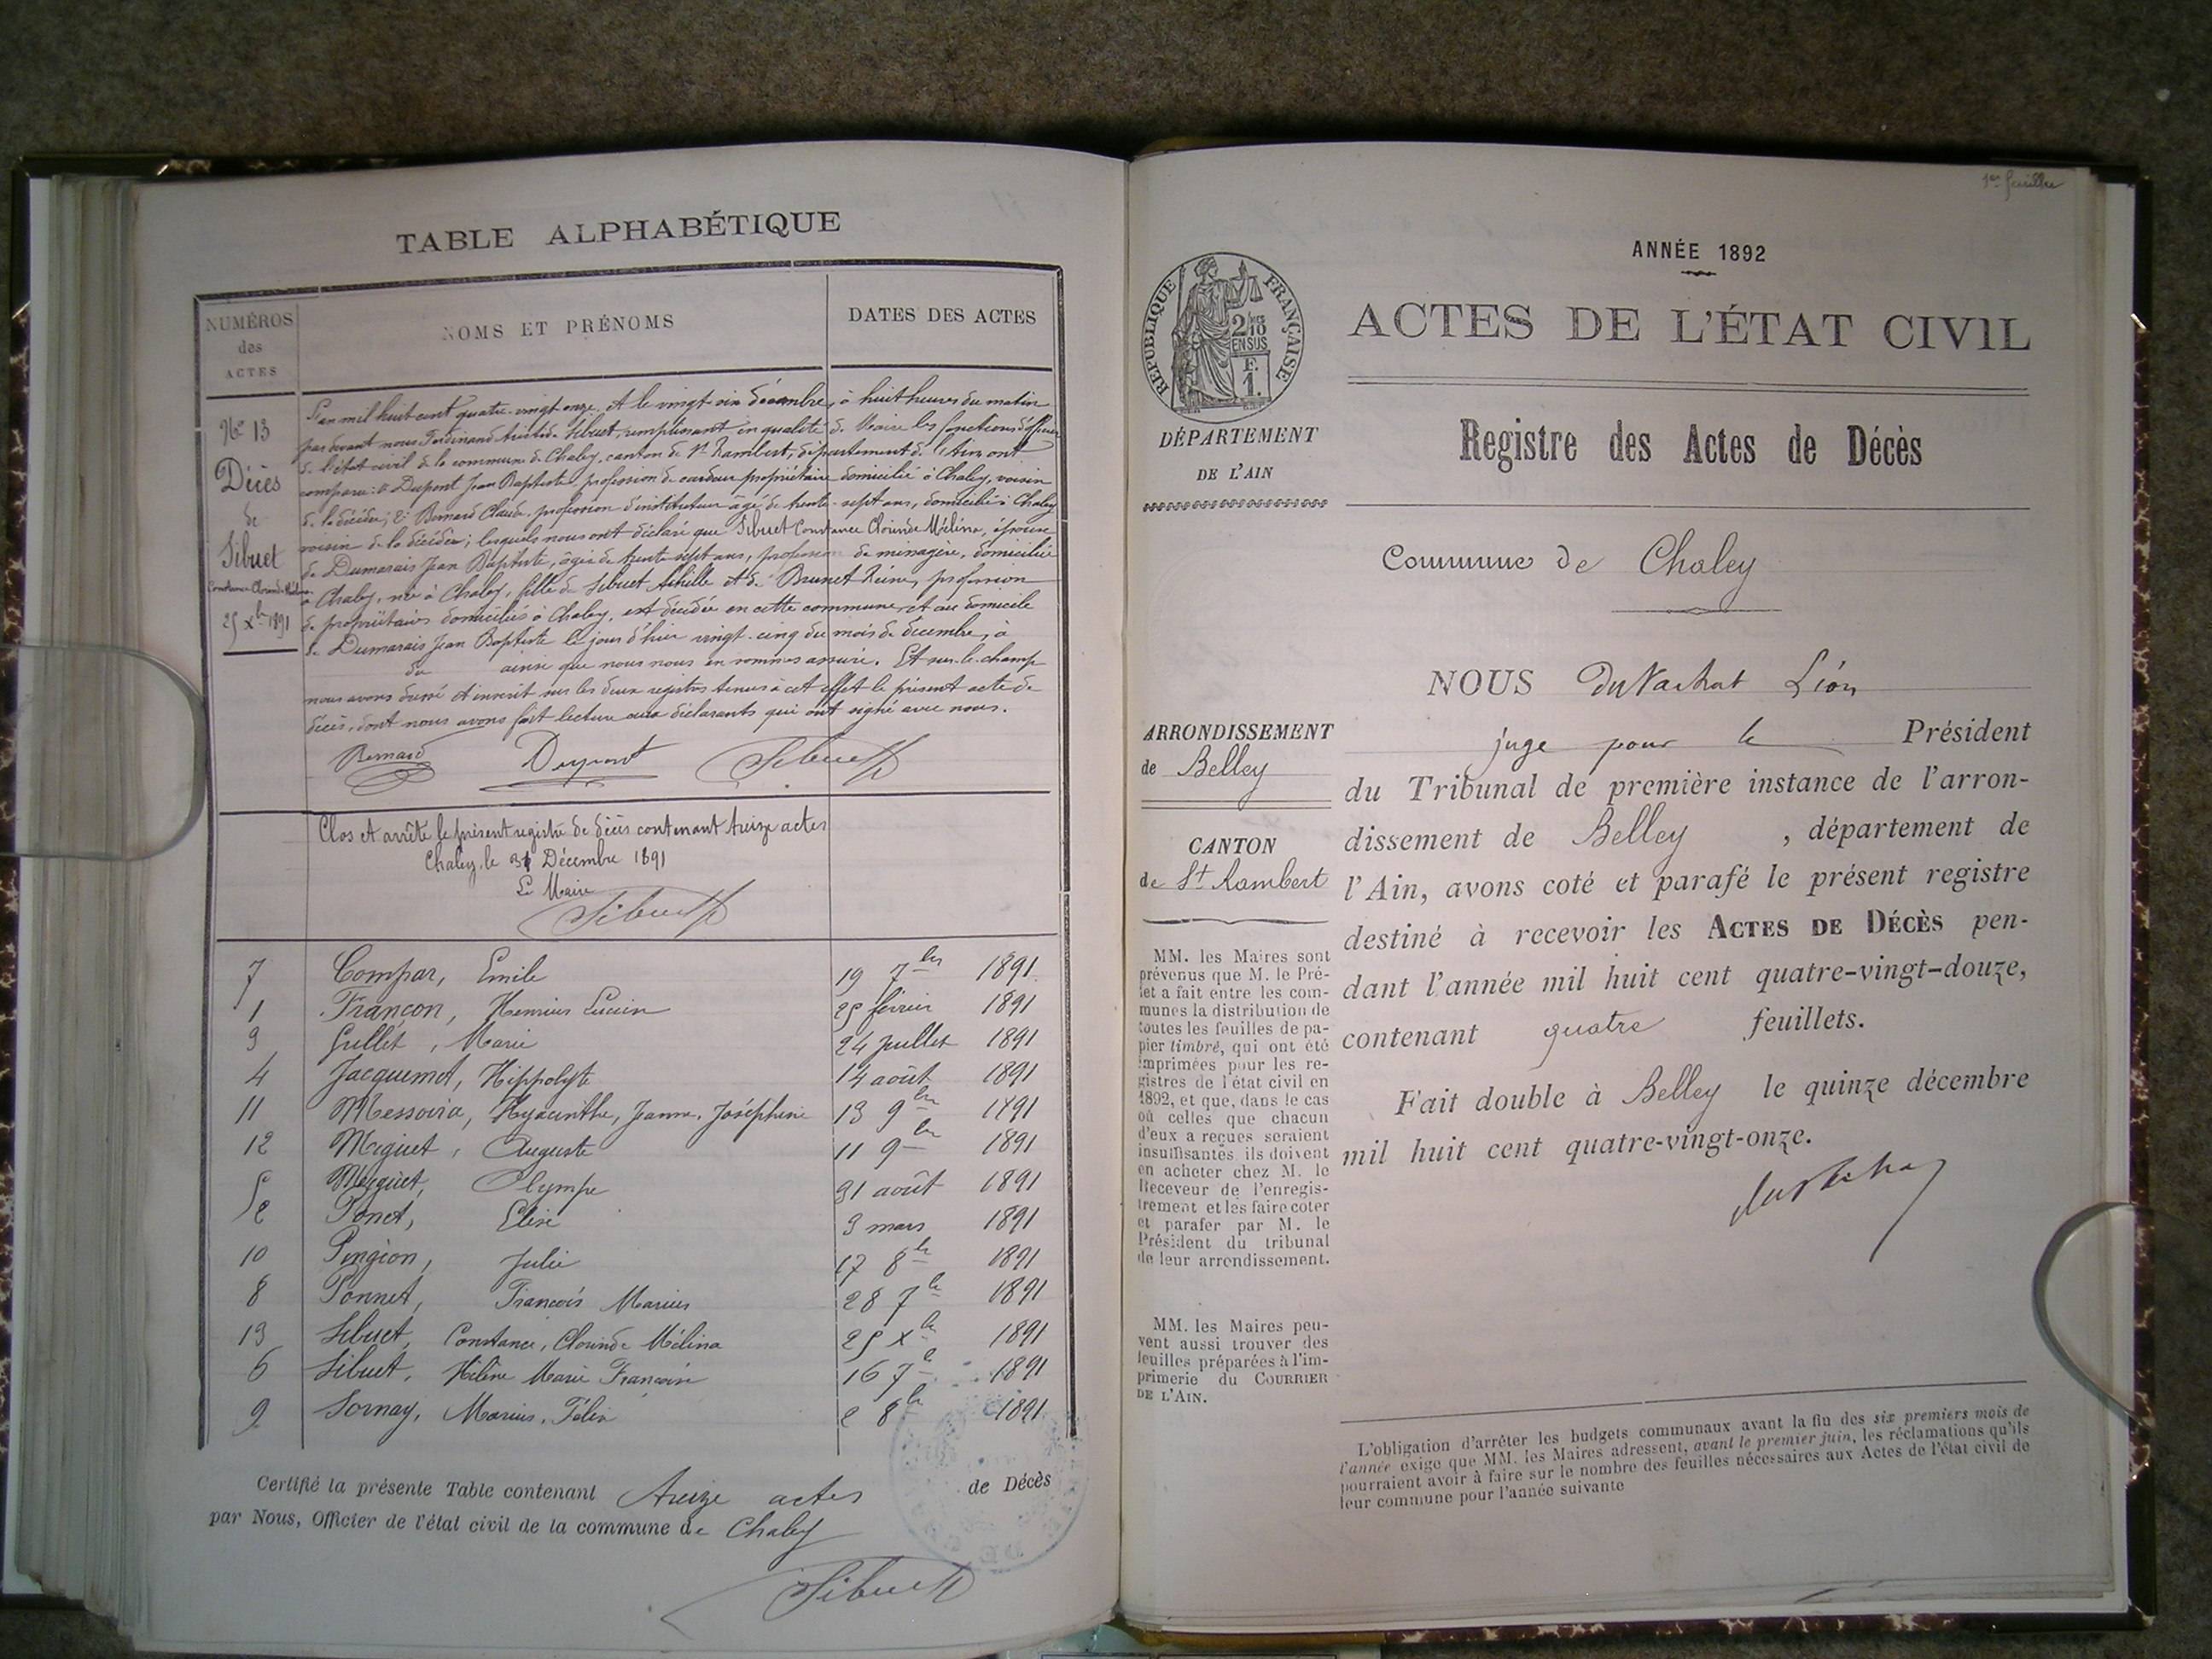 TABLE ALPHABÉTIQUE
NUMÉROS
des
ACTES
NOMS ET PRÉNOMS
DATES DES ACTES
No 13
Décès
de
Sibuet
Constance Clorinde Mélina
25 Xbre 1891
L'an mil huit cent quatre-vingt onze et le vingt six décembre, à huit heures du matin
par devant nous Ferdinand Aristide Sibuet, remplissant en qualité de Maire les fonctions d'officier
de l'état civil de la commune de Chaley, canton de St Rambert, département de l'Ain, ont
comparu: 1º Dupont Jean Baptiste profession de propriétaire domicilié à Chaley, voisin
de la décédée; 2º Bernard Claude profession d'instituteur âgé de trente-sept ans, domicilié à Chaley
voisin de la décédée; lesquels nous ont déclaré que Sibuet Constance Clorinde Mélina, épouse
de Dumarais Jean Baptiste, âgée de trente sept ans, profession de ménagère, domiciliée
à Chaley, née à Chaley, fille de Sibuet Achille et de Brunet Reine, profession
de propriétaires domiciliés à Chaley, est décédée en cette commune et au domicile
de Dumarais Jean Baptiste le jour d'hier vingt-cinq du mois de décembre, à
du ainsi que nous nous en sommes assuré. Et sur-le-champ
nous avons dressé et inscrit sur les deux registres tenus à cet effet le présent acte de
décès, dont nous avons fait lecture aux déclarants qui ont signé avec nous.
Bernard Dupont Sibuet
Clos et arrêté le présent registre de décès contenant treize actes
Chaley, le 31 Décembre 1891
Le Maire
Sibuet
7 Compar, Emile 19 7bre 1891
1 Françon, Lucien 25 février 1891
3 Gullet, Marie 24 juillet 1891
4 Jacquemet, Hippolyte 14 août 1891
11 Messoira, Hyacinthe, Jeanne, Joséphine 13 9bre 1891
12 Miguet, Auguste 11 9bre 1891
5 Miguet, Olympe 31 août 1891
2 Ponet, Elise 3 mars 1891
10 Pingeon, Julie 17 8bre 1891
8 Ponnet, François Marius 28 7bre 1891
13 Sibuet, Constance, Clorinde Mélina 25 Xbre 1891
6 Sibuet, Hélène Marie Françoise 16 7bre 1891
9 Sornay, Marius, Félix 2 8bre 1891
Certifié la présente Table contenant treize actes de Décès
par Nous, Officier de l'état civil de la commune de Chaley
Sibuet
1er feuillet
ANNÉE 1892
ACTES DE L'ÉTAT CIVIL
RÉPUBLIQUE FRANÇAISE
2/10
EN SUS
F.
1.
DÉPARTEMENT
DE L'AIN
Registre des Actes de Décès
Commune de Chaley
ARRONDISSEMENT
de Belley
CANTON
de St Rambert
MM. les Maires sont
prévenus que M. le Pré-
fet a fait entre les com-
munes la distribution de
toutes les feuilles de pa-
pier timbré, qui ont été
imprimées pour les re-
gistres de l'état civil en
1892, et que, dans le cas
où celles que chacun
d'eux a reçues seraient
insuffisantes ils doivent
en acheter chez M. le
Receveur de l'enregis-
trement et les faire coter
et parafer par M. le
Président du tribunal
de leur arrondissement.
MM. les Maires peu-
vent aussi trouver des
feuilles préparées à l'im-
primerie du COURRIER
DE L'AIN.
NOUS DuVachat Léon
juge pour le Président
du Tribunal de première instance de l'arron-
dissement de Belley, département de
l'Ain, avons coté et parafé le présent registre
destiné à recevoir les ACTES DE DÉCÈS pen-
dant l'année mil huit cent quatre-vingt-douze,
contenant quatre feuillets.
Fait double à Belley le quinze décembre
mil huit cent quatre-vingt-onze.
L'obligation d'arrêter les budgets communaux avant la fin des six premiers mois de
l'année exige que MM. les Maires adressent, avant le premier juin, les réclamations qu'ils
pourraient avoir à faire sur le nombre des feuilles nécessaires aux Actes de l'état civil de
leur commune pour l'année suivante